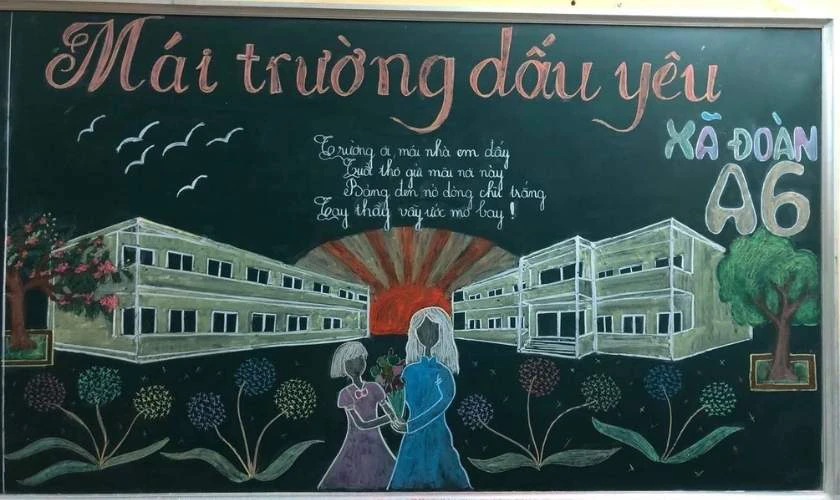 Mái trường dấu yêu
Trường ơi, mái nhà em đấy
Tuổi thơ gửi mãi nơi này
Bảng đen nở dòng chữ trắng
Tay thầy vẫy ước mơ bay!
XÃ ĐOÀN
A6